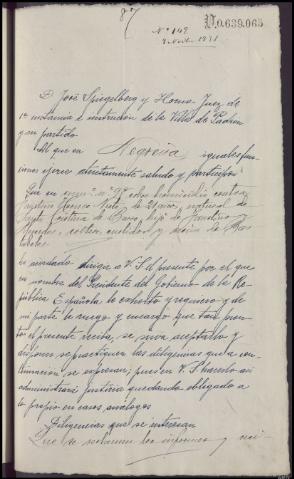 87
Nº 0.639.065
Nº 142
7 Novbre 1931
D. José Spiegelberg y Horno, Juez de
1ª instancia e instrucción de la Villa de Padrón
y su partido
Al que en Negreira iguales fun-
ciones ejerce atentamente saludo y participo:
Que en sumº nº 98 sobre homicidio contra
de 21 años, natural de
Santa Cristina de Barro, hijo de
y soltero, y vecino de
he acordado dirigir a V. S. el presente por el que
en nombre del Presidente del Gobierno de la Re-
pública Española le exhorto y requiero y de
mi parte le ruego y encargo que tan pron-
to el presente reciba, se sirva aceptarlo y
disponer se practiquen las diligencias que a con-
tinuación se expresan; pues en V. S. hacerlo así
administrará justicia quedando obligado a
lo propio en casos análogos
Diligencias que se interesan
Que se reclamen los informes y